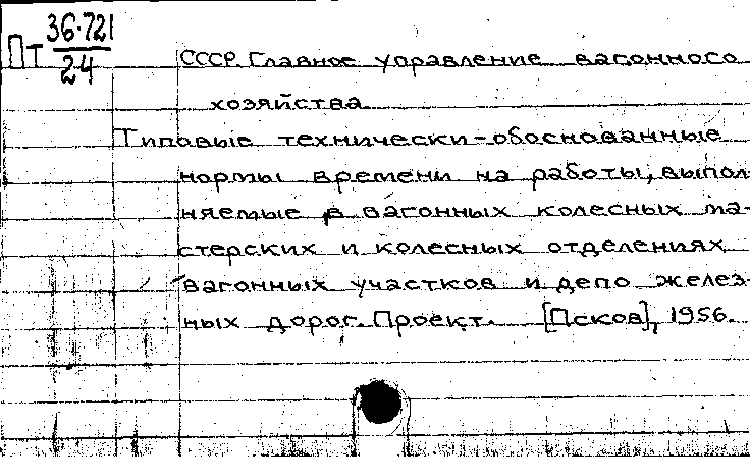 Пт 36-721
24
СССР. Главное управление вагонного
хозяйства.
Типовые технически-обоснованные
нормы времени на работы, выпол
няемые в вагонных колесных ма-
стерских и колесных отделениях
вагонных участков и депо желез-
ных дорог. Проект. [Псков], 1956.